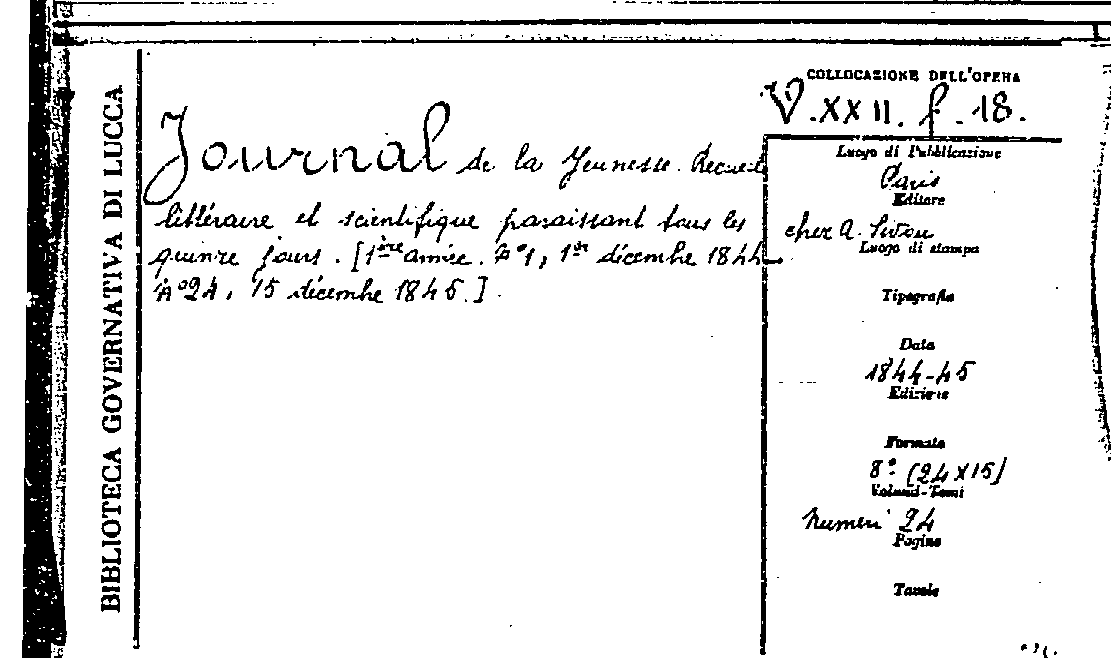 BIBLIOTECA GOVERNATIVA DI LUCCA
Journal de la Jeunesse. Recueil
littéraire et scientifique paraissant tous les
quinze jours. [1ère année. N° 1, 1er décembre 1844 -
N° 24, 15 décembre 1845.]
COLLOCAZIONE DELL'OPERA
V. XXII. f. 18.
Luogo di Pubblicazione
Paris
Editore
chez A.
Luogo di stampa
Tipografia
Data
1844-45
Edizione
Formato
8° (24x15)
Volumi-Tomi
Numeri 24
Pagine
Tavole